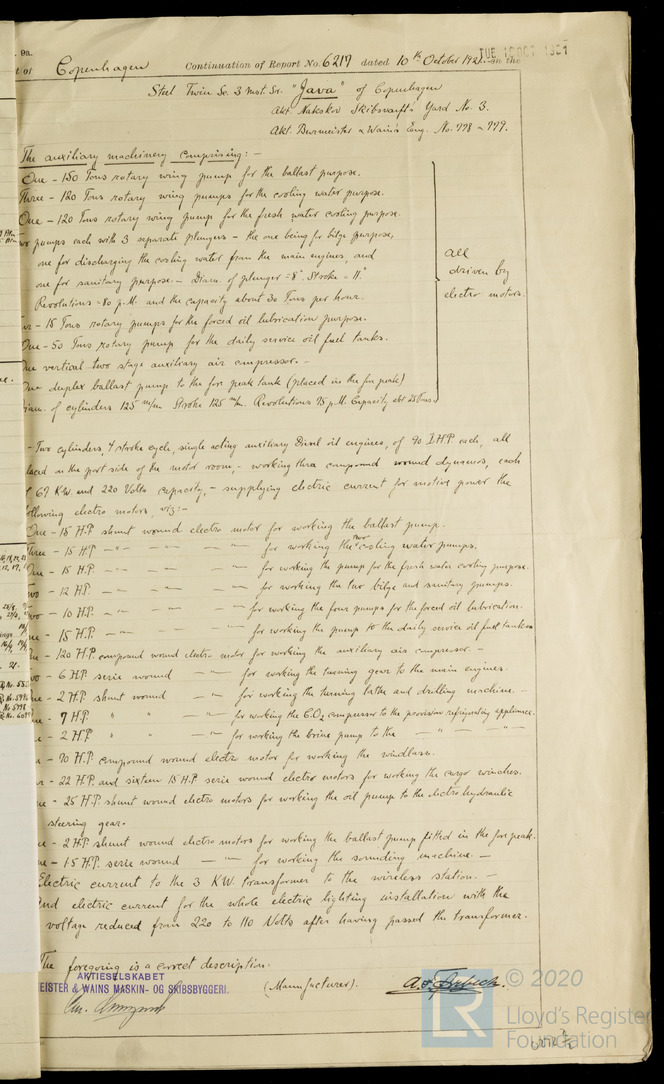 9a.
t of Copenhagen Continuation of Report No. 6217 dated 10th October 1921 on the
TUE 18 OCT 1921
Steel Twin Sc. 3 mst. Sr. "Java" of Copenhagen
Akt. Nakskov Skibsvaerft's Yard No. 3.
Akt. Burmeister & Wain's Eng. No. 998 - 999.
The auxiliary machinery comprising: -
One - 150 Tons rotary wing pump for the ballast purpose.
Three - 120 Tons rotary wing pumps for the cooling water purpose.
One - 120 Tons rotary wing pump for the fresh water cooling purpose.
wo pumps each with 3 separate plungers - the one being for bilge purpose,
one for discharging the cooling water from the main engines, and
one for sanitary purpose. - Diam. of plunger = 8" Stroke = 11"
Revolutions - 40 p.M. and the capacity about 30 Tons per hour.
ur - 18 Tons rotary pumps for the forced oil lubrication purpose.
One - 50 Tons rotary pump for the daily service oil fuel tanks.
One vertical two stage auxiliary air compressor. -
One duplex ballast pump to the fore peak tank (placed in the fore peak)
Diam. of cylinders 125 m/m Stroke 125 m/m. Revolutions 95 p.M. Capacity abt 25 Tons
all
driven by
electro motors.
- Two cylinders, 4 stroke cycle, single acting auxiliary Diesel oil engines, of 90 I.H.P. each, all
laced on the port side of the motor room, - working three compound wound dynamos, each
f 67 K.W. and 220 Volts capacity, - supplying electric current for motive power the
following electro motors, viz: -
One - 18 H.P. shunt wound electro motor for working the ballast pump.
Three - 15 H.P. - " - - " - - " - for working the two cooling water pumps.
One - 15 H.P. - " - - " - - " - for working the pump for the fresh water cooling purpose.
wo - 12 H.P. - " - - " - - " - for working the two bilge and sanitary pumps.
- 10 H.P. - " - - " - - " - for working the four pumps for the forced oil lubrication.
ne - 15 H.P. - " - - " - - " - for working the pump to the daily service oil fuel tanks
ne - 120 H.P. compound wound electro motor for working the auxiliary air compressor. -
wo - 6 H.P. serie wound - " - for working the turning gear to the main engines.
ne - 2 H.P. shunt wound - " - for working the turning lathe and drilling machine. -
ne - 7 H.P. " " - " - for working the C.O2 compressor to the provision refrigerating appliance.
ne - 2 H.P. " " - " - for working the brine pump to the - " - - " - - " -
- 70 H.P. compound wound electro motor for working the windlass.
- 22 H.P. and sixteen 15 H.P. serie wound electro motors for working the cargo winches.
ne - 25 H.P. shunt wound electro motors for working the oil pump to the electro hydraulic
steering gear.
ne - 2 H.P. shunt wound electro motors for working the ballast pump fitted in the fore peak.
ne - 1.5 H.P. serie wound - " - for working the sounding machine. -
Electric current to the 3 K.W. transformer to the wireless station. -
and electric current for the whole electric lighting installation with the
voltage reduced from 220 to 110 Volts after having passed the transformer.
The foregoing is a correct description.
AKTIESELSKABET
EISTER & WAINS MASKIN- OG SKIBSBYGGERI. (Manufacturer).
LR © 2020
Lloyd's Register
Foundation